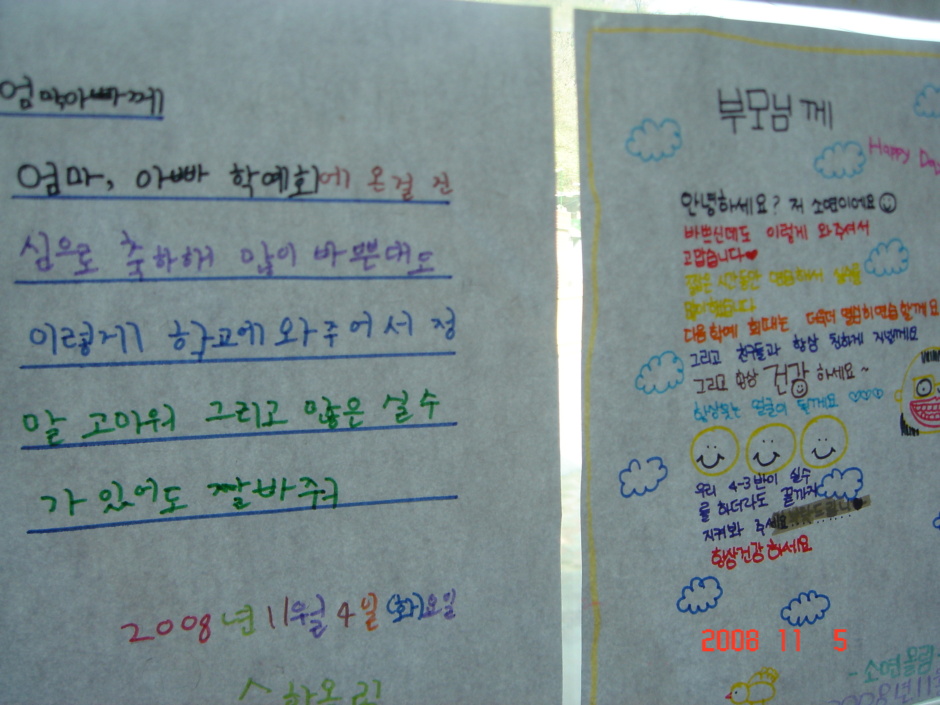 엄마아빠께
엄마, 아빠 학예회에 온걸 진
심으로 축하해 많이 바쁜대도
이렇게 학교에 와 주어서 정
말 고마워 그리고 많은 실수
가 있어도 잘 바줘
2008년 11월 4일 (화)요일
부모님께
Happy Day
안녕하세요? 저 소연이에요
바쁘신데도 이렇게 와주셔서
고맙습니다
짧은 시간동안
다음 학예회때는 더욱더 열심히 연습할게요
그리고 친구들과 항상 친하게 지낼게요
그리고 항상 건강 하세요~
항상 웃는 얼굴이 될게요
우리 4-3반이 실수
를 하더라도 끝까지
지켜봐 주세요
항상건강하세요
2008 11 5
-소연올림-
2008년 11